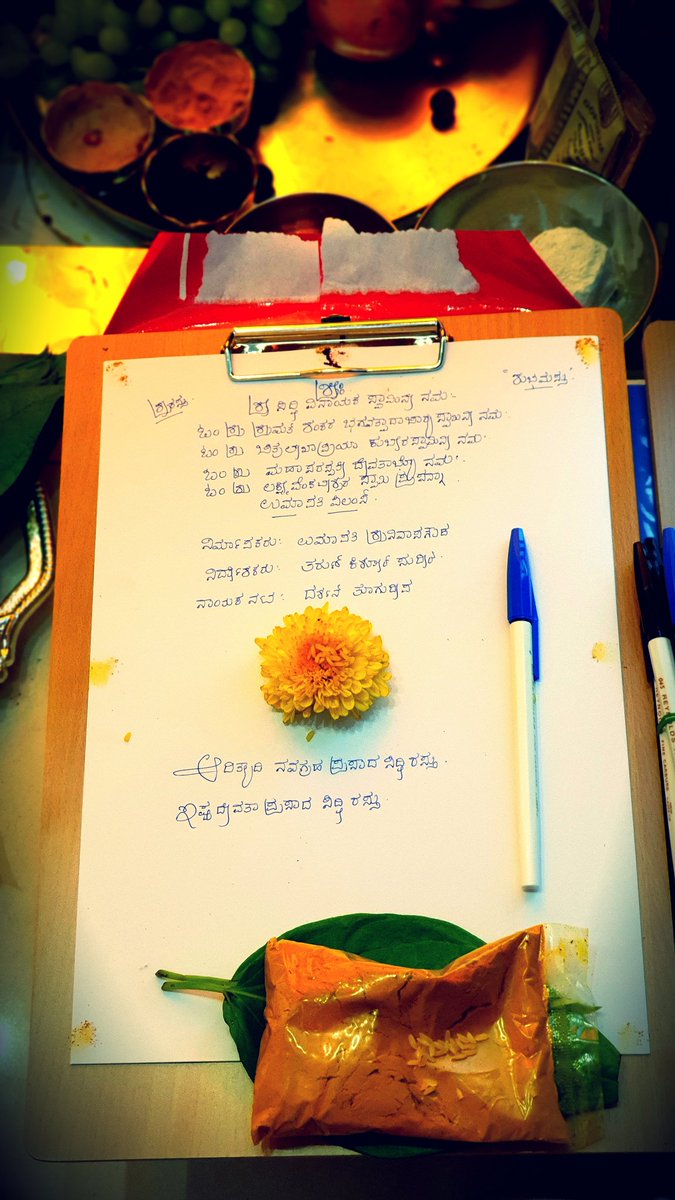 ಶ್ರೀ
ಶ್ರೀರಸ್ತು. "ಶುಭಮಸ್ತು"
ಶ್ರೀ ಸಿದ್ಧಿ ವಿನಾಯಕ ಸ್ವಾಮಿನೇ ನಮಃ.
ಓಂ ಶ್ರೀ ಶ್ರೀಮತೇ ಶಂಕರ ಭಗವತ್ಪಾದಾಚಾರ್ಯ ಸ್ವಾಮಿನೇ ನಮಃ.
ಓಂ ಶ್ರೀ ಚಿತ್ರಲೇಖಾಪ್ರಿಯಾ ಕುಬೇರಸ್ವಾಮಿನೇ ನಮಃ.
ಓಂ ಶ್ರೀ ಮಹಾ ಸರಸ್ವತೀ ದೇವತಾಭ್ಯೋ ನಮಃ.
ಓಂ ಶ್ರೀ ಲಕ್ಷ್ಮೀ ವೆಂಕಟೇಶ್ವರ ಸ್ವಾಮಿ ಪ್ರಸನ್ನ
ಉಮಾಪತಿ ಫಿಲಂಸ್.
ನಿರ್ಮಾಪಕರು: ಉಮಾಪತಿ ಶ್ರೀನಿವಾಸಗೌಡ
ನಿರ್ದೇಶಕರು: ತರುಣ್ ಕಿಶೋರ್ ಸುಧೀರ್
ನಾಯಕ ನಟ: ದರ್ಶನ್ ತೂಗುದೀಪ
ಆದಿತ್ಯಾದಿ ನವಗ್ರಹ ಪ್ರಸಾದ ಸಿದ್ಧಿರಸ್ತು.
ಇಷ್ಟದೇವತಾ ಪ್ರಸಾದ ಸಿದ್ಧಿರಸ್ತು.